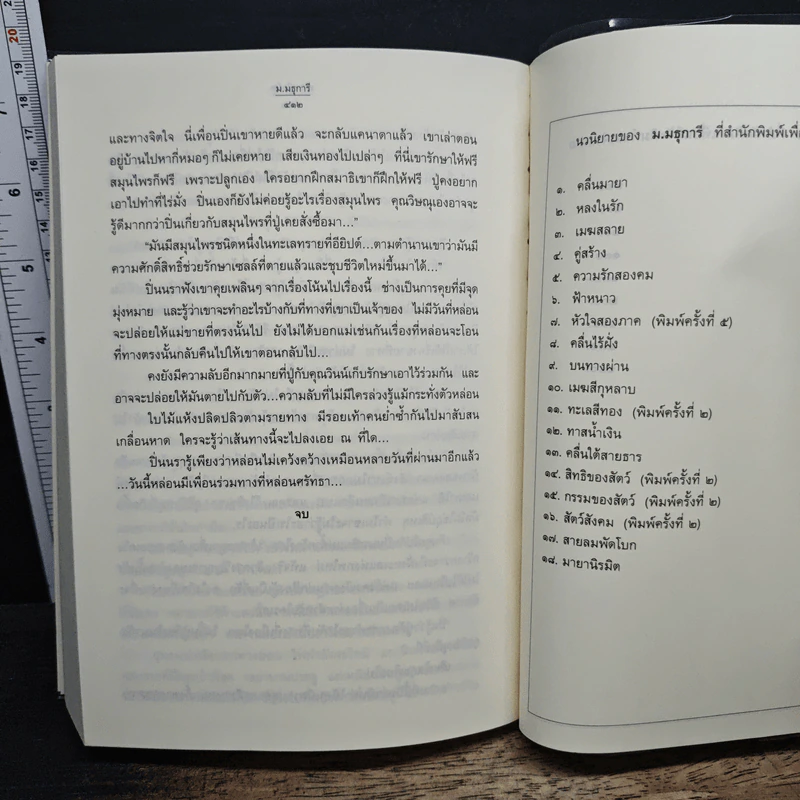 ม.มธุการี
๔๑๒
และทางจิตใจ นี่เพื่อนปิ่นเขาหายดีแล้ว จะกลับแคนาดาแล้ว เขาเล่าตอน
อยู่บ้านไปหากี่หมอๆ ก็ไม่เคยหาย เสียเงินทองไปเปล่าๆ ที่นี่เขารักษาให้ฟรี
สมุนไพรก็ฟรี เพราะปลูกเอง ใครอยากฝึกสมาธิเขาก็ฝึกให้ฟรี ปู่คงอยาก
เอาไปทำที่ไร่มั่ง ปิ่นเองก็ยังไม่ค่อยรู้อะไรเรื่องสมุนไพร คุณวิษณุเองอาจจะ
รู้ดีมากกว่าปิ่นเกี่ยวกับสมุนไพรที่ปู่เคยสั่งซื้อมา...”
“มันมีสมุนไพรชนิดหนึ่งในทะเลทรายที่อียิปต์...ตามตำนานเขาว่ามันมี
ความศักดิ์สิทธิ์ช่วยรักษาเซลล์ที่ตายแล้วและชุบชีวิตใหม่ขึ้นมาได้...”
ปิ่นนราฟังเขาคุยเพลินๆ จากเรื่องโน้นไปเรื่องนี้ ช่างเป็นการคุยที่มีจุด
มุ่งหมาย และรู้ว่าเขาจะทำอะไรบ้างกับที่ทางที่เขาเป็นเจ้าของ ไม่มีวันที่หล่อน
จะปล่อยให้แม่ขายที่ตรงนั้นไป ยังไม่ได้บอกแม่เช่นกันเรื่องที่หล่อนจะโอน
ที่ทางตรงนั้นกลับคืนไปให้เขาตอนกลับไป...
คงยังมีความลับอีกมากมายที่ปู่กับคุณวินน์เก็บรักษาเอาไว้ร่วมกัน และ
อาจจะปล่อยให้มันตายไปกับตัว...ความลับที่ไม่มีใครล่วงรู้แม้กระทั่งตัวหล่อน
ใบไม้แห้งปลิดปลิวตามรายทาง มีรอยเท้าคนย่ำซ้ำกันไปมาสับสน
เกลื่อนหาด ใครจะรู้ว่าเส้นทางนี้จะไปลงเอย ณ ที่ใด...
ปิ่นนรารู้เพียงว่าหล่อนไม่เคว้งคว้างเหมือนหลายวันที่ผ่านมาอีกแล้ว
...วันนี้หล่อนมีเพื่อนร่วมทางที่หล่อนศรัทธา...
จบ
นวนิยายของ ม.มธุการี ที่สำนักพิมพ์เพื่
๑. คลื่นมายา
๒. หลงในรัก
๓. เมฆสลาย
๔. คู่สร้าง
๕. ความรักสองคม
๖. ฟ้าหนาว
๗. หัวใจสองภาค (พิมพ์ครั้งที่ ๕)
๘. คลื่นไร้ฝั่ง
๙. บนทางผ่าน
๑๐. เมฆสีกุหลาบ
๑๑. ทะเลสีทอง (พิมพ์ครั้งที่ ๒)
๑๒. ทาสน้ำเงิน
๑๓. คลื่นใต้สายธาร
๑๔. สิทธิของสัตว์ (พิมพ์ครั้งที่ ๒)
๑๕. กรรมของสัตว์ (พิมพ์ครั้งที่ ๒)
๑๖. สัตว์สังคม (พิมพ์ครั้งที่ ๒)
๑๗. สายลมพัดโบก
๑๘. มายานิรมิต
20
19
18
17
7
6
5
4
3